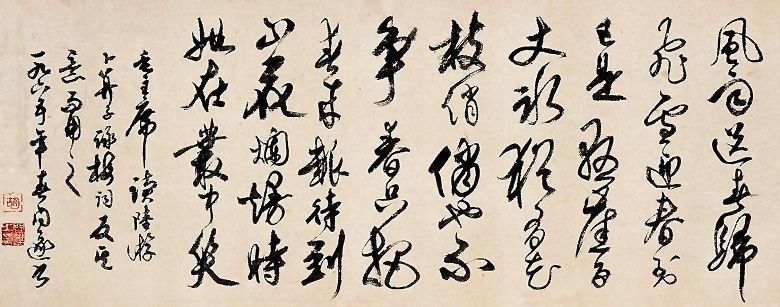 風雨送春歸
飛雪迎春到
已是懸崖百
丈冰猶有花
枝俏俏也不
爭春只把
春來報待到
山花爛熳時
她在叢中笑
毛主席讀陸游
卜算子詠梅詞反其
意而用之
一九六 年春